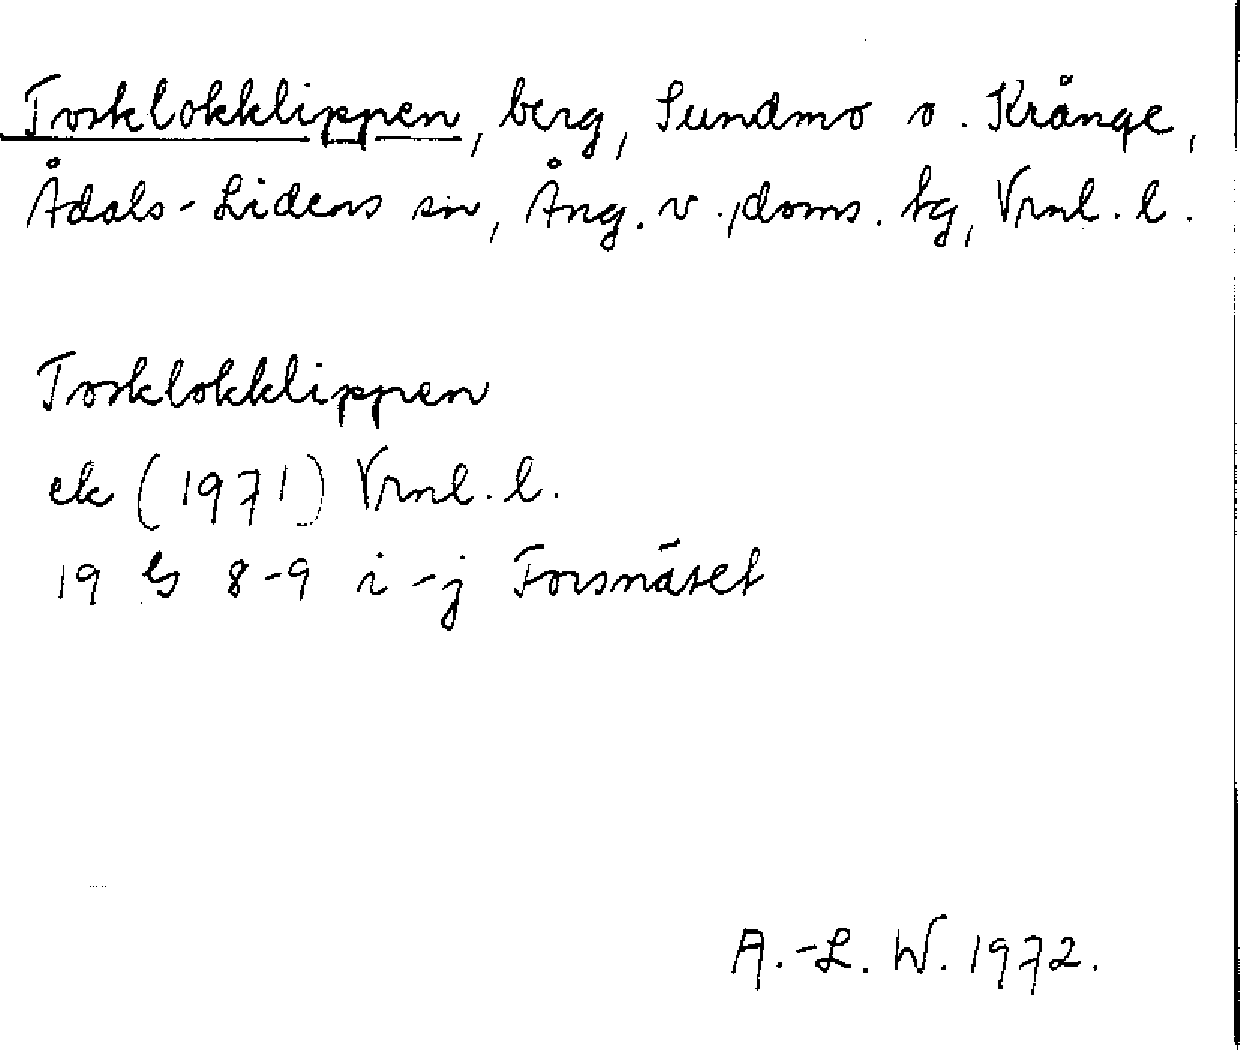 Torklokklippen, berg, Sundmo o. Krånge,
Ådals-Lidens sn, Äng. v., doms. tg, Vrml. l.
Torklokklippen
ek (1971) Vrml. l.
19 G 8-9 i-j Forsnäset
A.-L. W. 1972.